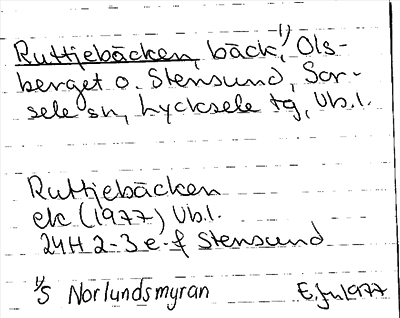 Ruttjebäcken, bäck,¹⁾ Ols-
berget o. Stensund, Sor-
sele sn, Lycksele tg, Vb.l.
Ruttjebäcken
ek (1977) Vb.l.
24H 2-3 e-f Stensund
¹⁾S Norlundsmyran
1977